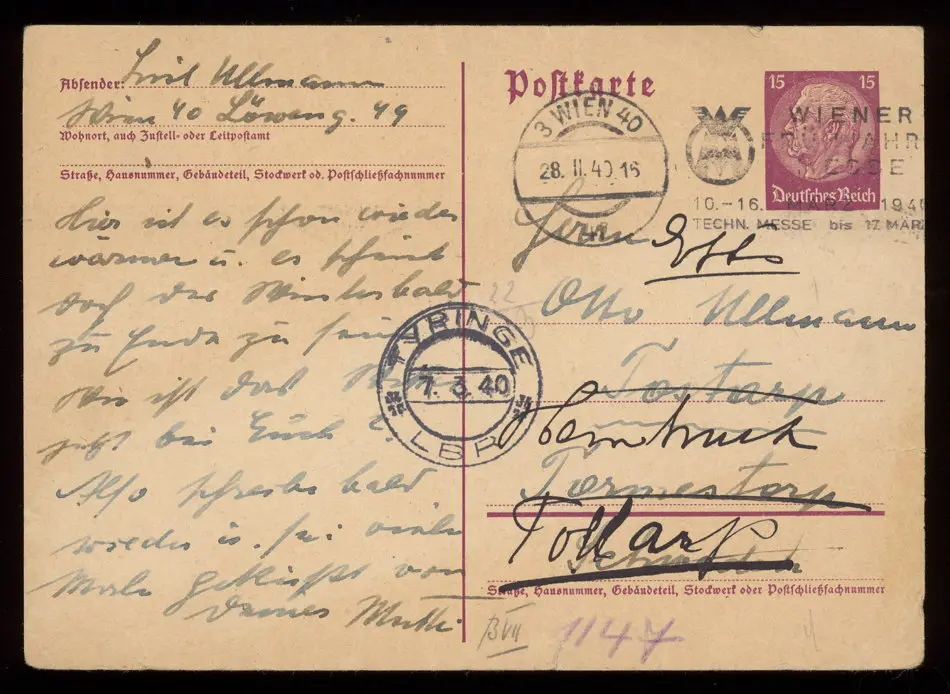 Absender: Emil Ullmann
Wien 40 Löweng. 49
Wohnort, auch Zustell- oder Leitpostamt
Straße, Hausnummer, Gebäudeteil, Stockwerk od. Postschließfachnummer
Hier ist es schon wieder
wärmer u. es scheint
doch der Winter bald
zu Ende zu sein
Wie ist das
jetzt bei Euch
Also schreibe bald
wieder u. sei viele
Male geküßt von
Deiner Mutti
Postkarte
15 15
Deutsches Reich
3 WIEN 40
28. II. 40.16
WIENER
FRÜHJAHRS
MESSE
10.-16. MÄRZ 1940
TECHN. MESSE bis 17. MÄRZ
Herrn
Otto Ullmann
Tostarp
Tormestorp
Tollarp
Straße, Hausnummer, Gebäudeteil, Stockwerk oder Postschließfachnummer
TYRINGE
7. 3. 40
LBR
22
B VII
1147